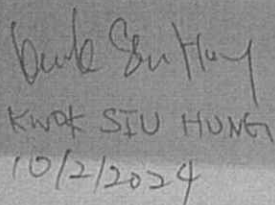 Kwok Siu Hung
KWOK SIU HUNG
10/2/2024